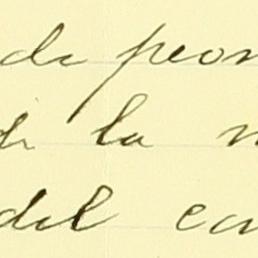 de peon
de la m
del con